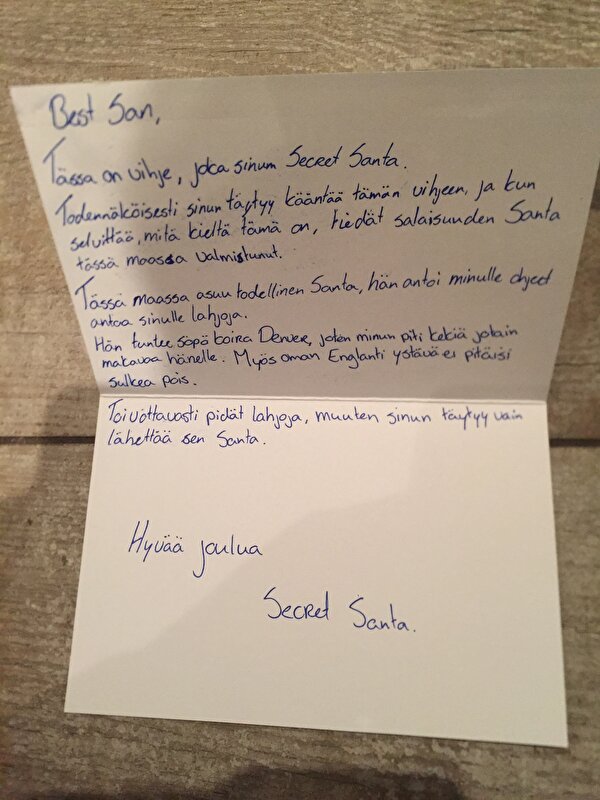 Best San,
Tässä on vihje, joka sinum Secret Santa.
Todennäköisesti sinun täytyy kääntää tämän vihjeen, ja kun
selvittää, mitä kieltä tämä on, tiedät salaisuuden Santa
tässä maassa valmistunut.
Tässä maassa asuu todellinen Santa, hän antoi minulle ohjeet
antaa sinulle lahjoja.
Hän tuntee söpö koira Denver, joten minun piti keksiä jotain
makavaa hänelle. Myös oman Englanti ystävä ei pitäisi
sulkea pois.
Toivottavasti pidät lahjoja, muuten sinun täytyy vain
lähettää sen Santa.
Hyvää joulua
Secret Santa.